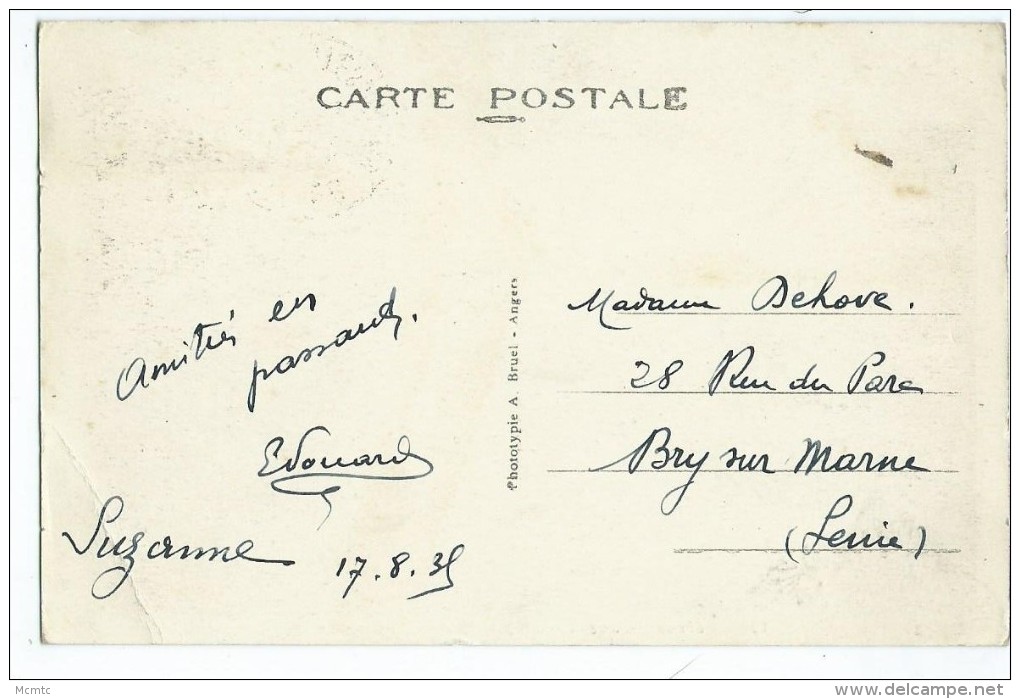 CARTE POSTALE
Amitiés en
passant.
Edouard
Suzanne
17.8.35
Phototypie A. Bruel - Angers
Madame Dehove.
28 Rue du Parc
Bry sur Marne
(Seine)
Mcmtc
www.delcampe.net